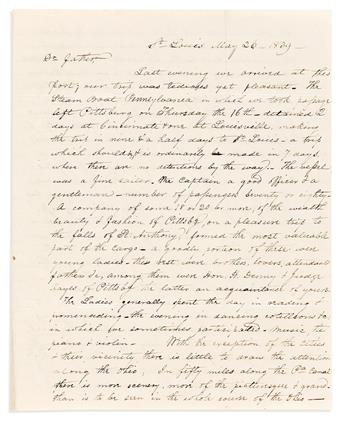 St. Louis May 26 - 1839 -
Dr. Father
Last evening we arrived at this
port; our trip was tedious yet pleasant - The
Steam Boat Pennsylvania in which we took passage
left Pittsburg on Thursday the 16th - detained 2
days at Cincinnati & one at Louisville, making
the trip in nine & a half days to St Louis - a trip
which should & is ordinarily made in 7 days,
when there are no detentions by the way. - The vessel
was a fine sailer. The Captain a good officer & a
gentleman - number of passengers seventy or eighty -
A company of some 18 or 20 or more, of the wealth
beauty & fashion of Pittsbg. on a pleasure trip to
the falls of St. Anthony, formed the most valuable
part of the cargo - a goodly portion of these were
young ladies - the rest were brothers, lovers, attendants
fathers &c, among them were Hon. H. Denny & Judge
Hayes of Pittsbg the latter an acquaintance of yours
The Ladies generally spent the day in reading &
promenading - the evening in dancing cotillions &c
in which for sometimes participated - Music the
piano & violin - With the exception of the cities
& their vicinities there is little to draw the attention
along the Ohio, In fifty miles along the Pa Canal
there is more scenery, more of the picturesque & grand
than is to be seen in the whole course of the Ohio -